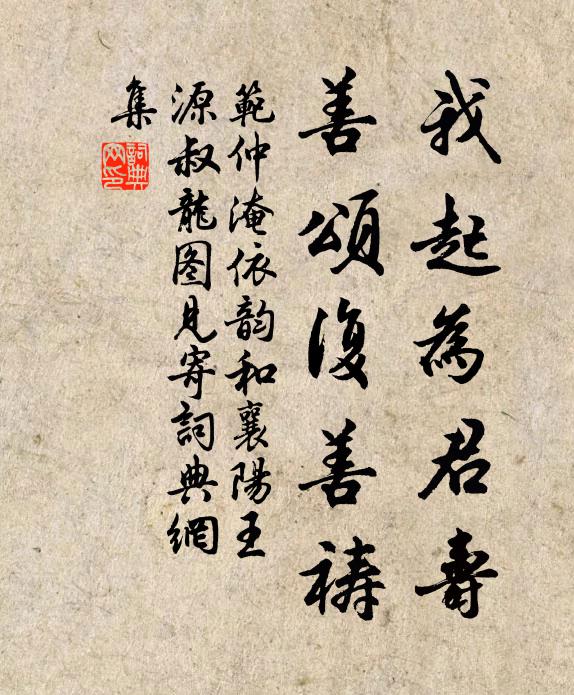 我起為君壽
善頌復善禱
範仲淹依韵和襄陽王
源叔龍图見寄詞典網
集
詞典
网印